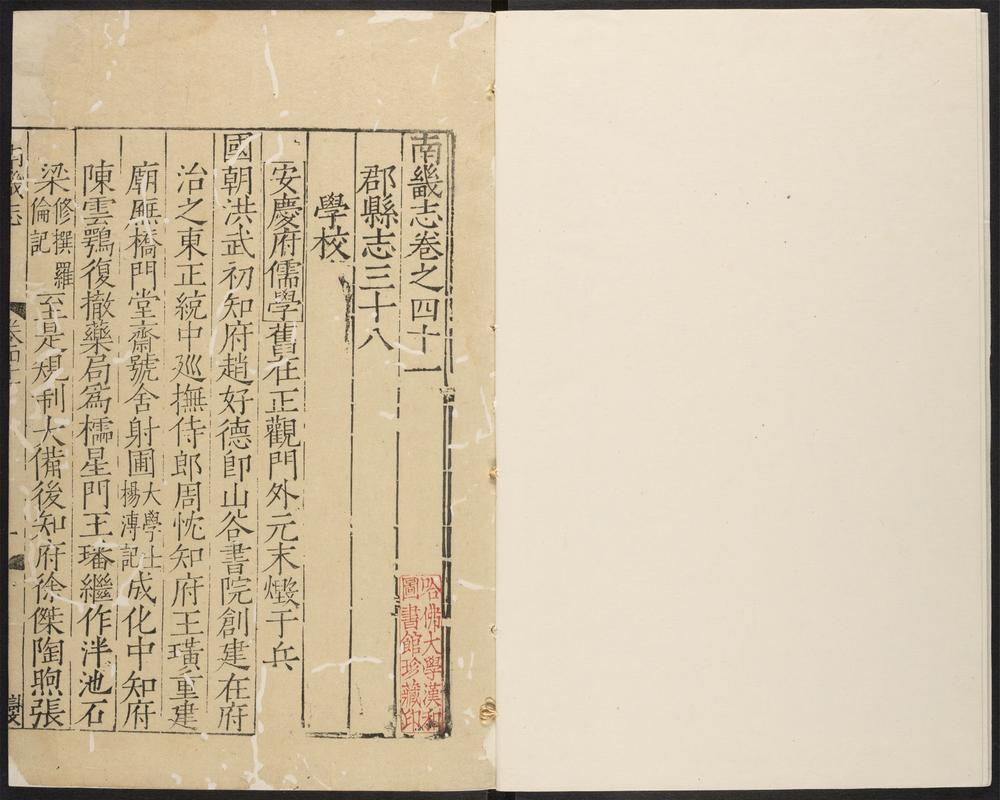 南畿志卷之四十一
郡縣志三十八
學校
安慶府儒學舊在正觀門外元末燬于兵
國朝洪武初知府趙好德卽山谷書院創建在府
治之東正統中廵撫侍郎周忱知府王璜重建
廟廡橋門堂齋號舍射圃大學士楊溥記成化中知府
陳雲鶚復撤藥局爲櫺星門王璠繼作泮池石
梁修撰羅倫記至是規制大備後知府徐傑陶煦張
南畿志
卷四十一
哈佛大學漢和
圖書館珍藏印